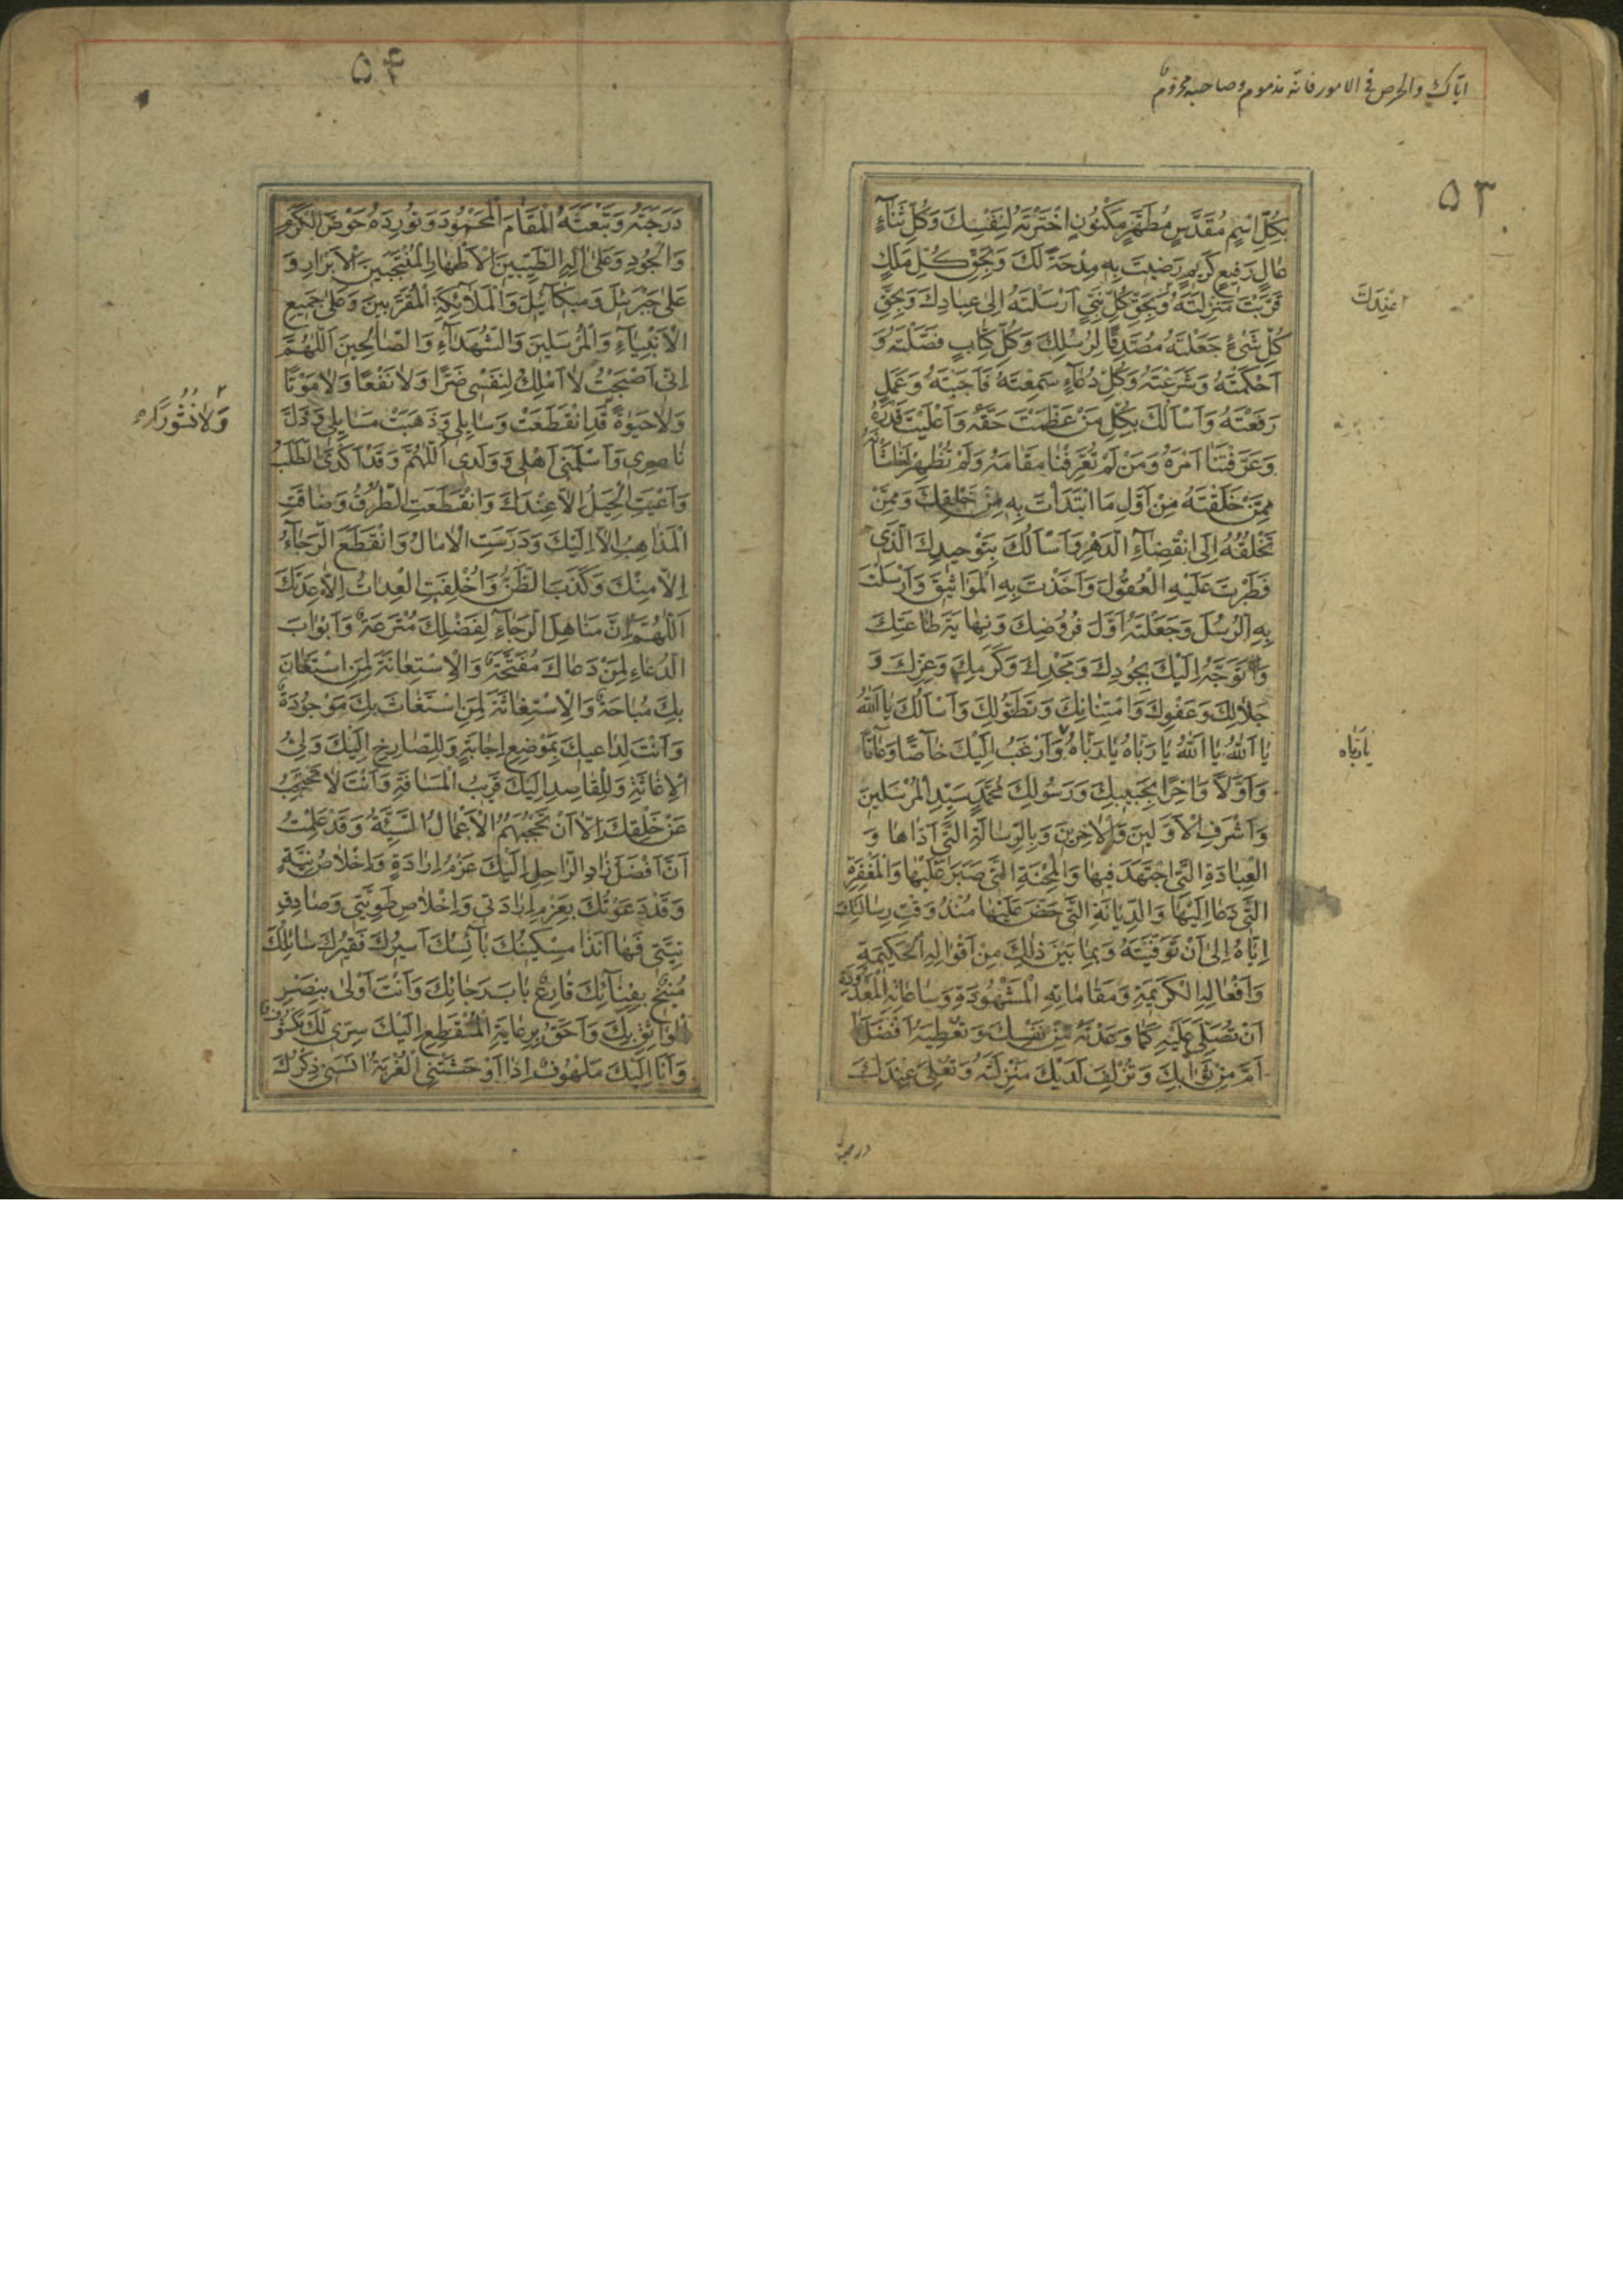 اياك والحرص في الامور فانه مذموم وصاحبه محروم
۵۳
بِكُلِّ اسْمٍ مُقَدَّسٍ مُطَهَّرٍ مَكْنُونٍ اخْتَرْتَهُ لِنَفْسِكَ وَكُلِّ ثَنَآءٍ
عَالٍ رَفيعٍ كَريمٍ رَضيتَ بِهِ مِدْحَةً لَكَ وَبِحَقِّ كُلِّ مَلَكٍ
قَرَّبْتَ مَنْزِلَتَهُ وَبِحَقِّ كُلِّ نَبِيٍّ اَرْسَلْتَهُ اِلىٰ عِبادِكَ وَبِحَقِّ
عِنْدَكَ
كُلِّ شَىْءٍ جَعَلْتَهُ مُصَدِّقًا لِرُسُلِكَ وَكُلِّ كِتابٍ فَصَّلْتَهُ وَ
اَحْكَمْتَهُ وَشَرَعْتَهُ وَكُلِّ دُعآءٍ سَمِعْتَهُ فَاَجَبْتَهُ وَعَمَلٍ
رَفَعْتَهُ وَاَسْاَلُكَ بِكُلِّ مَنْ عَظَّمْتَ حَقَّهُ وَاَعْلَيْتَ قَدْرَهُ
وَعَرَّفْتَنَا اَمْرَهُ وَمَنْ لَمْ تُعَرِّفْنا مَقامَهُ وَلَمْ تُظْهِرْ لَنا شَأْنَهُ
مِمَّنْ خَلَقْتَهُ مِنْ اَوَّلِ مَا ابْتَدَأْتَ بِهِ مِنْ خَلْقِكَ وَمِمَّنْ
تَخْلُقُهُ اِلَى انْقِضآءِ الدَّهْرِ وَاَسْاَلُكَ بِتَوْحيدِكَ الَّذى
فَطَرْتَ عَلَيْهِ الْعُقُولَ وَاَخَذْتَ بِهِ الْمَواثيقَ وَاَرْسَلْتَ
بِهِ الرُّسُلَ وَجَعَلْتَهُ اَوَّلَ فُرُوضِكَ وَنِهايَةَ طاعَتِكَ
وَاَتَوَجَّهُ اِلَيْكَ بِجُودِكَ وَمَجْدِكَ وَكَرَمِكَ وَعِزِّكَ وَ
جَلالِكَ وَعَفْوِكَ وَامْتِنانِكَ وَتَطَوُّلِكَ وَاَسْاَلُكَ يا اَللهُ
يا اَللهُ يا اَللهُ يا رَبَّاهُ يا رَبَّاهُ وَاَرْغَبُ اِلَيْكَ خآصًّا وَعآمًّا
يا رَبّاه
وَاَوَّلًا وَاٰخِرًا بِحَبيبِكَ وَرَسُولِكَ مُحَمَّدٍ سَيِّدِ الْمُرْسَلينَ
وَاَشْرَفِ الْاَوَّلينَ وَالْاٰخِرينَ وَبِالرِّسالَةِ الَّتى اَدّاها وَ
الْعِبادَةِ الَّتى اجْتَهَدَ فيها وَالْمِحْنَةِ الَّتى صَبَرَ عَلَيْها وَالْمَغْفِرَةِ
الَّتى دَعا اِلَيْها وَالدِّيانَةِ الَّتى حَضَّ عَلَيْها مُنْذُ وَقْتِ رِسالَتِكَ
اِيّاهُ اِلىٰ اَنْ تَوَفَّيْتَهُ وَبِما بَيْنَ ذٰلِكَ مِنْ اَقْوالِهِ الْحَكيمَةِ
وَاَفْعالِهِ الْكَريمَةِ وَمَقاماتِهِ الْمَشْهُودَةِ وَساعاتِهِ الْمَعْدُودَةِ
اَنْ تُصَلِّىَ عَلَيْهِ كَما وَعَدْتَهُ مِنْ نَفْسِكَ وَتُعْطِيَهُ اَفْضَلَ
اَمَّ مِنْ ثَوابِكَ وَتُزْلِفَ لَدَيْكَ مَنْزِلَتَهُ وَتُعْلِىَ عِنْدَكَ
درجته
۵۴
دَرَجَتَهُ وَتَبْعَثَهُ الْمَقامَ الْمَحْمُودَ وَتُورِدَهُ حَوْضَ الْكَرَمِ
وَالْجُودِ وَعَلىٰ اٰلِهِ الطَّيِّبينَ الْاَطْهارِ الْمُنْتَجَبينَ الْاَبْرارِ وَ
عَلىٰ جَبْرَئيلَ وَميكآئيلَ وَالْمَلآئِكَةِ الْمُقَرَّبينَ وَعَلىٰ جَميعِ
الْاَنْبِيآءِ وَالْمُرْسَلينَ وَالشُّهَدآءِ وَالصّالِحينَ اَللّٰهُمَّ
اِنّى اَصْبَحْتُ لا اَمْلِكُ لِنَفْسى ضَرًّا وَلا نَفْعًا وَلا مَوْتًا
وَلا حَيٰوةً قَدِ انْقَطَعَتْ وَسايِلى وَذَهَبَتْ مَسايِلى وَذَلَّ
وَلا نُشُورًا
ناصِرى وَاَسْلَمَنى اَهْلى وَوَلَدى اَللّٰهُمَّ وَقَدْ اَكْدَى الطَّلَبُ
وَاَعْيَتِ الْحِيَلُ اِلّا عِنْدَكَ وَانْقَطَعَتِ الطُّرُقُ وَضاقَتِ
الْمَذاهِبُ اِلّا اِلَيْكَ وَدَرَسَتِ الْاٰمالُ وَانْقَطَعَ الرَّجآءُ
اِلّا مِنْكَ وَكَذَبَ الظَّنُّ وَاُخْلِفَتِ الْعِداتُ اِلّا عِدَتَكَ
اَللّٰهُمَّ اِنَّ مَناهِلَ الرَّجآءِ لِفَضْلِكَ مُتْرَعَةٌ وَاَبْوابَ
الدُّعآءِ لِمَنْ دَعاكَ مُفَتَّحَةٌ وَالْاِسْتِعانَةَ لِمَنِ اسْتَعانَ
بِكَ مُباحَةٌ وَالْاِسْتِغاثَةَ لِمَنِ اسْتَغاثَ بِكَ مَوْجُودَةٌ
وَاَنْتَ لِداعيكَ بِمَوْضِعِ اِجابَةٍ وَلِلصّارِخِ اِلَيْكَ وَلِىُّ
الْاِغاثَةِ وَلِلْقاصِدِ اِلَيْكَ قَريبُ الْمَسافَةِ وَاَنْتَ لا تَحْتَجِبُ
عَنْ خَلْقِكَ اِلّا اَنْ تَحْجُبَهُمُ الْاَعْمالُ السَّيِّئَةُ وَقَدْ عَلِمْتُ
اَنَّ اَفْضَلَ زادِ الرّاحِلِ اِلَيْكَ عَزْمُ اِرادَةٍ وَاِخْلاصُ نِيَّةٍ
وَقَدْ دَعَوْتُكَ بِعَزْمِ اِرادَتى وَاِخْلاصِ طَوِيَّتى وَصادِقِ
نِيَّتى فَها اَنَذا مِسْكينُكَ بآئِسُكَ اَسيرُكَ فَقيرُكَ سائِلُكَ
مُنيخٌ بِفِنآئِكَ قارِعٌ بابَ رَجائِكَ وَاَنْتَ اَوْلىٰ بِنَصْرِ
الْواثِقِ بِكَ وَاَحَقُّ بِرِعايَةِ الْمُنْقَطِعِ اِلَيْكَ سِرّى لَكَ مَكْشُوفٌ
وَاَنَا اِلَيْكَ مَلْهُوفٌ اِذا اَوْحَشَتْنِى الْغُرْبَةُ اٰنَسَنى ذِكْرُكَ